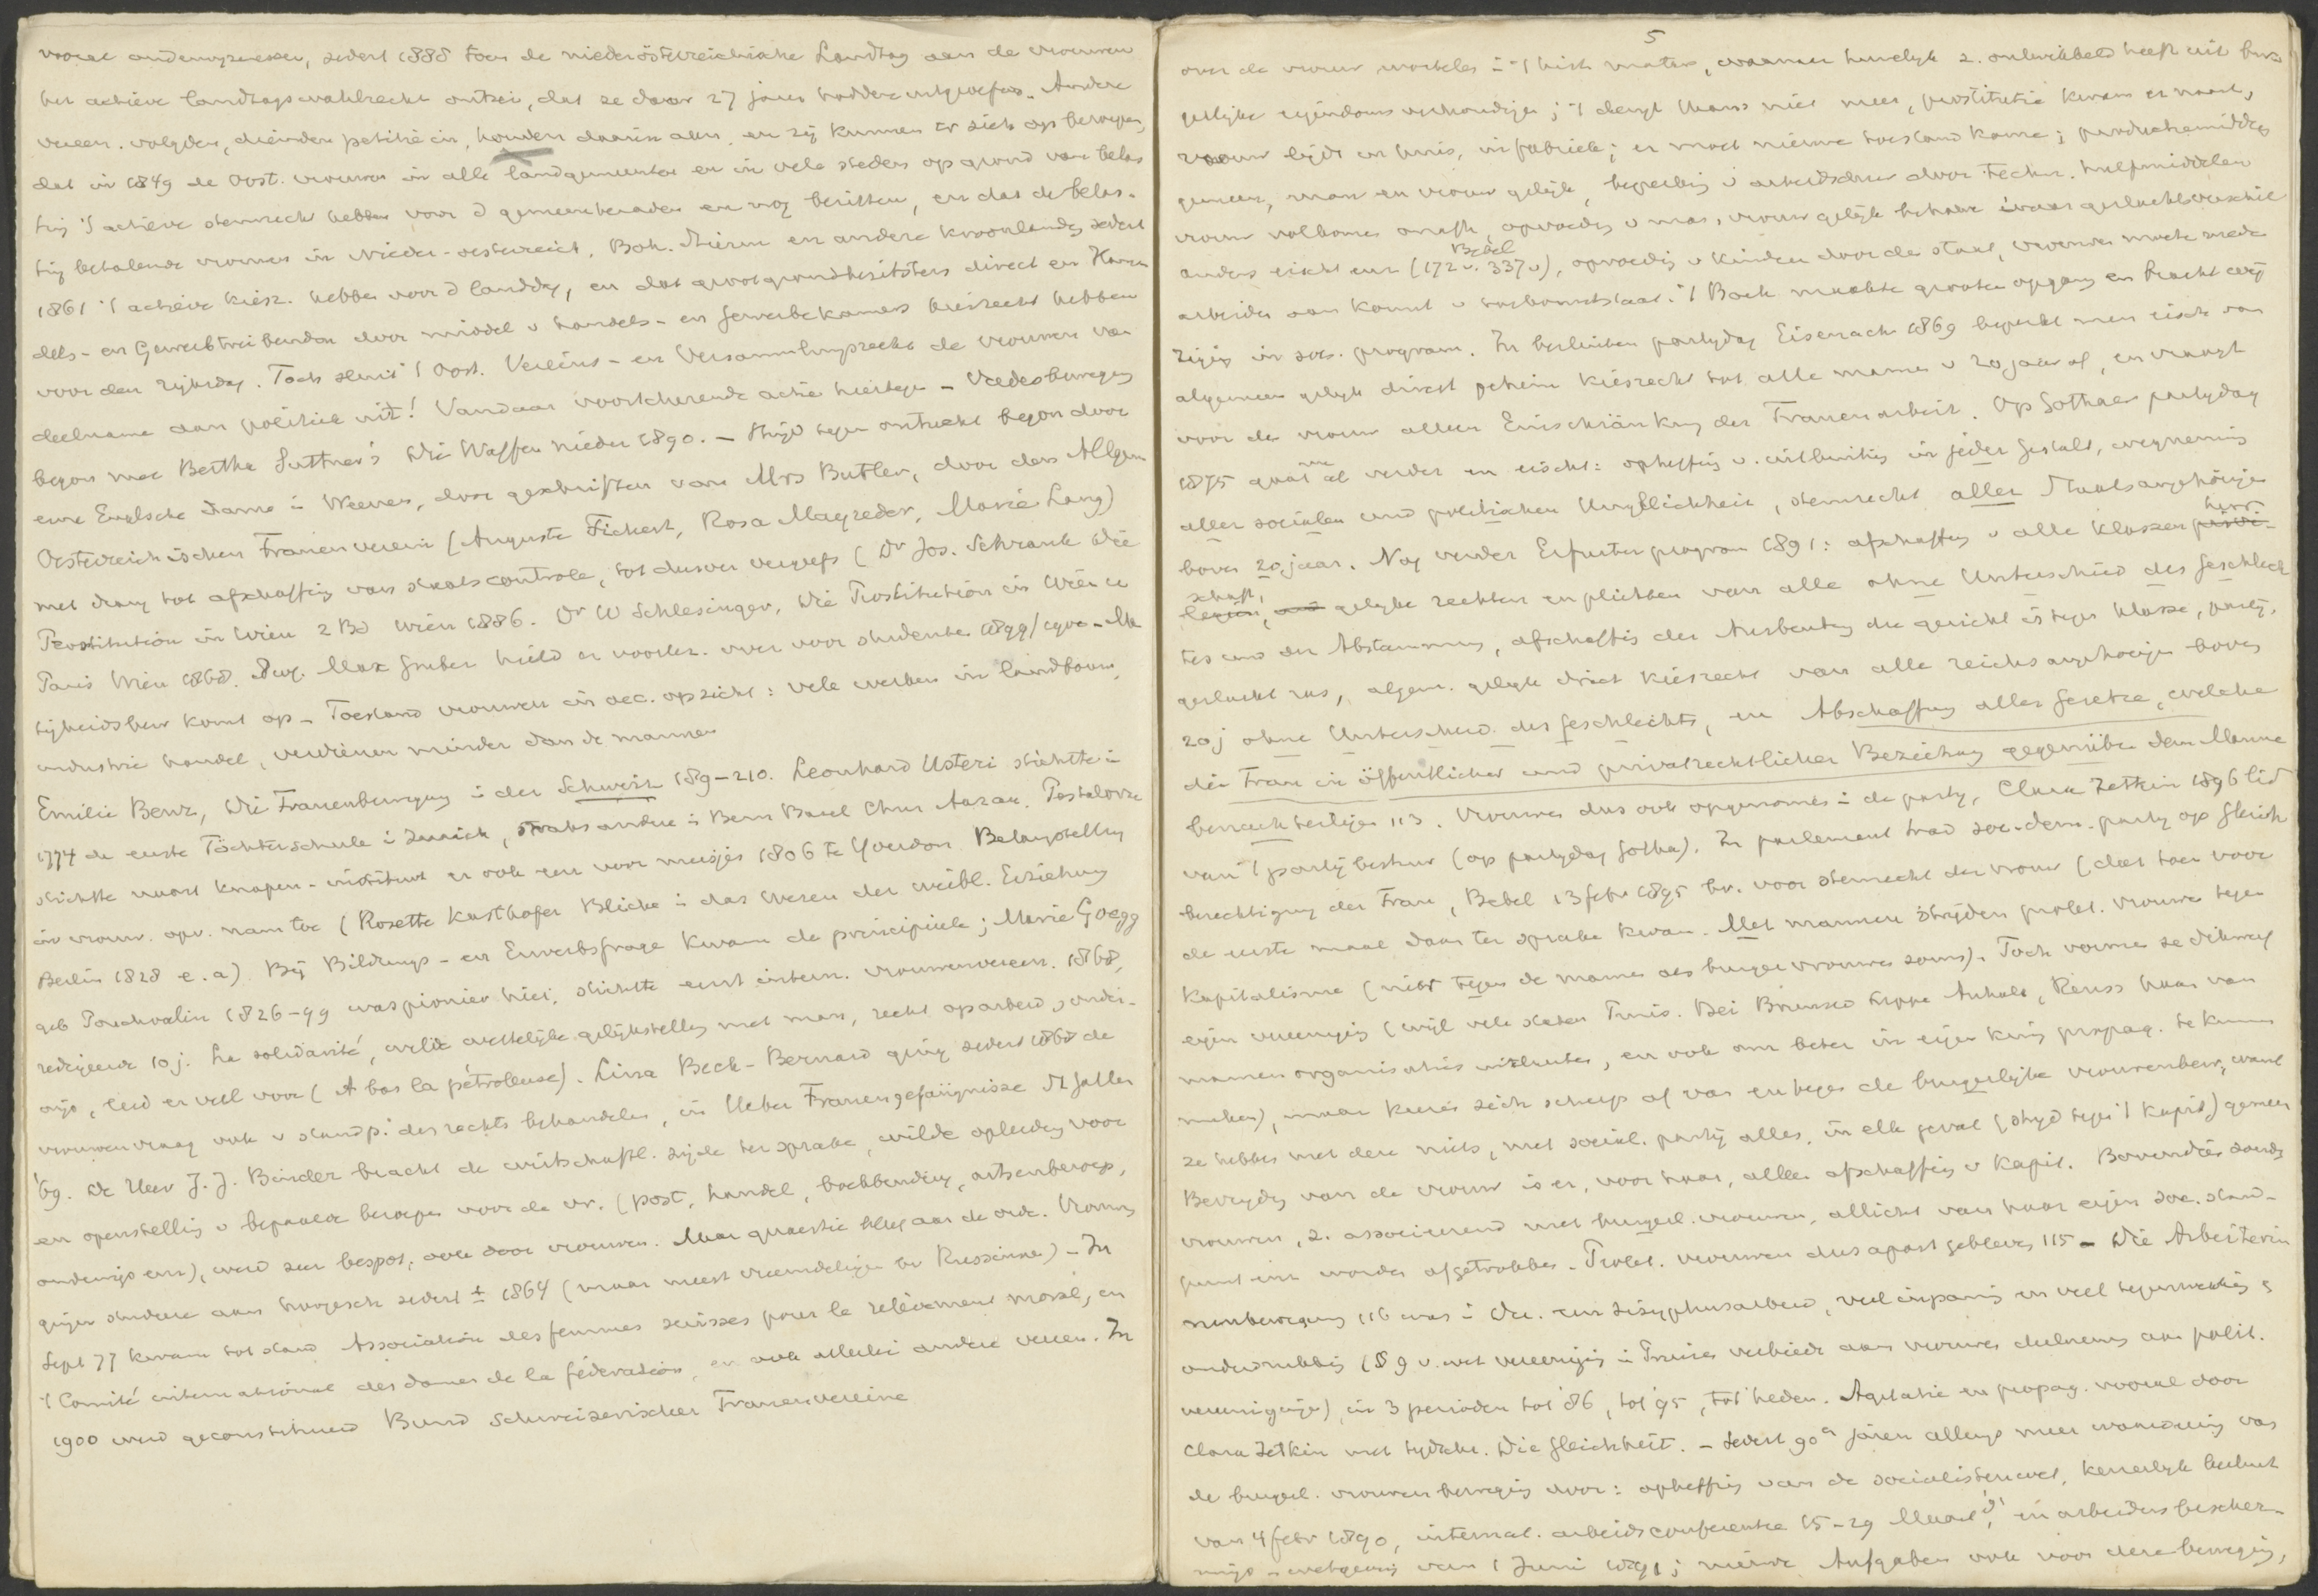 vooral onderwijzeressen, sedert 1888 toen de niederösterreichische Landtag aan de vrouwen
het actieve landtagswahlrecht ontzei, dat ze daar 27 jaren hadden uitgeoefend. Andere
vereen. volgden, dienden petitie in, houden daarin aan, en zij kunnen er zich op beroepen,
dat in 1849 de Oost. vrouwen in alle landgemeenten en in vele steden op grond van belas
ting 't actieve stemrecht hebben voor d gemeenteraden en nog bezitten, en dat de belas-
ting betalende vrouwen in Nieder-oesterreich, Boh. Stierm en andere kroonlanden sedert
1861 't actieve kiesr. hebben voor d landdag, en dat grootgrondbezitsters direct en Han
dels- en Gewerbtreibenden door middel v handels- en Gewerbekamers kiesrecht hebben
voor den rijksdag. Toch sluit 't Oost. Vereins- en Versammlungsrecht de vrouwen van
deelname aan politiek uit! Vandaar voortdurende actie hiertegen – Vredesbeweging
begon met Bertha Suttner's Die Waffen nieder 1890. – Strijd tegen ontucht begon door
eene Engelsche dame i Weenen, door geschriften van Mrs Butler, door den Allgem
Oesterreichischen Frauenverein (Auguste Fickert, Rosa Mayreder, Marie Lang)
met drang tot afschaffing van staatscontrole, tot dusver vergeefs (Dr Jos. Schrank Die
Prostitution in Wien 2 Bd Wien 1886. Dr W Schlesinger, Die Prostitution in Wien u
Paris Wien 1868. Prof. Max Gruber hield er voorlez. over voor studenten 1899/1900 – Ma
tigheidsbew komt op – Toestand vrouwen in oec. opzicht: vele werken in landbouw,
industrie handel, verdienen minder dan de mannen
Emilie Benz, Die Frauenbewegung i der Schweiz 189–210. Leonhard Usteri stichtte i
1774 de eerste Töchterschule i Zurich, straks andere i Bern Basel Chur Aarau. Pestalozzi
stichtte naast knapen-instituut er ook een voor meisjes 1806 te Yverdon. Belangstelling
in vrouw. opv. nam toe (Rosette Kasthofer Blicke i das Wesen der weibl. Erziehung
Berlin 1828 e.a). Bij Bildungs- en Erwerbsfrage kwam de principieele; Marie Goegg
geb Pouchoulin 1826–99 was pionier hier; stichtte eerst intern. vrouwenvereen. 1868,
redigeerde 10 j. La solidarité, wilde wettelijke gelijkstelling met man, recht op arbeid, onder-
wijs, leed er veel voor (A bas la pétroleuse). Lina Beck-Bernard ging sedert 1868 de
vrouwenvraag ook v standp. des rechts behandelen, in Ueber Frauengefängnisse St Gallen
'69. De Heer J. J. Binder bracht de wirtschaftl. zijde ter sprake, wilde opleiding voor
en openstelling v bepaalde beroepen voor de vr. (post, handel, boekhouding, artsenberoep,
onderwijs enz), werd zeer bespot, ook door vrouwen. Maar quaestie bleef aan de orde. Vrouwen
gingen studeren aan hoogesch sedert ± 1864 (maar meest vreemdelingen bv Russinnen) – In
Sept 77 kwam tot stand Association des femmes suisses pour le relèvement moral, en
't Comité international des dames de la fédération, en ook allerlei andere vereen. In
1900 werd geconstitueerd Bund Schweizerischer Frauenvereine
5
over de vrouw wortelen i 't hist mater., waarnaar huwelijk z. ontwikkeld heeft uit bur
gerlijke eigendoms verhoudingen; 't deugt thans niet meer, prostitutie kwam er naast,
vrouw lijdt in huis, in fabriek; er moet nieuwe toestand komen; productiemiddelen
gemeen, man en vrouw gelijk, beperking v arbeidsduur door techn. hulpmiddelen
vrouw volkomen onafh., opvoeding v man, vrouw gelijk behalve waar geslachtsverschil
Bebel
anders eischt enz (172 v. 337 v), opvoeding v kinderen door de staat, vrouwen moeten mede
arbeiden aan komst v toekomststaat. 't Boek maakte grooten opgang en bracht wij
ziging in soc. program. In berlinien partijdag Eisenach 1869 beperkt men eisch van
algemeen gelijk direct geheim kiesrecht tot alle mannen v 20 jaar af, en vraagt
voor de vrouw alleen Einschränkung der Frauenarbeit. Op Gothaer partijdag
1875 gaat men al verder en eischt: opheffing v. uitbuiting in jeder Gestalt, wegneming
aller socialen und politischen Ungleichheit, stemrecht aller Staatsangehörigen
boven 20 jaar. Nog verder Erfurter program 1891: afschaffing v alle klassen herr-
schaft, gelijke rechten en plichten van alle ohne Unterschied des Geschlech
tes und der Abstammung, afschaffing der Ausbeutung die gericht is tegen klasse, partij,
geslacht ras, algem. gelijk direct kiesrecht van alle reichsangehörigen boven
20 j ohne Unterschied des Geschlechts, en Abschaffung aller Gesetze, welche
die Frau in öffentlicher und privatrechtlicher Beziehung gegenüber dem Manne
benachteiligen 113. Vrouwen dus ook opgenomen i de partij, Clara Zetkin 1896 lid
van 't partijbestuur (op partijdag Gotha). In parlement trad soc-dem. partij op Gleich
berechtigung der Frau, Bebel 13 febr 1895 bv. voor stemrecht der vrouw (dat toen voor
de eerste maal daar ter sprake kwam. Met mannen strijden prolet. vrouwen tegen
kapitalisme (niet tegen de mannen als burgervrouwen soms). Toch vormen ze dikwijls
eigen vereeniging (wijl vele staten Pruis. Bei Brunsw Lippe Anhalt, Reuss haar van
mannen organisaties uitsluiten, en ook om beter in eigen kring propag. te kunnen
maken), maar keeren zich scherp af van en tegen de burgerlijke vrouwenbew, want
ze hebben met deze niets, met social. partij alles, in elk geval (strijd tegen 't kapit) gemeen
Bevrijding van de vrouw is er, voor haar, alleen afschaffing v kapit. Bovendien zouden
vrouwen, z. associeerend met burgerl. vrouwen, allicht van haar eigen soc. stand-
punt enz worden afgetrokken – Prolet. vrouwen dus apart gebleven 115 – Die Arbeiterin
nenbewegung 116 was i Du. een Sisyphusarbeid, veel inspannig en veel tegenwerking &
onderdrukking (§ 9 v. wet vereeniging i Pruisen verbiedt aan vrouwen deelneming aan polit.
vereenigingen) in 3 perioden tot '86, tot '95, tot heden. Agitatie en propag. vooral door
Clara Zetkin met tydschr. Die Gleichheit. – Sedert 90er jaren allengs meer waardeering van
de burgerl. vrouwenbeweging door: opheffing van de socialistenwet, keizerlijk besluit
van 4 febr 1890, internat. arbeidsconferentie 15–29 Maart d°, en arbeidersbescher-
mings-wetgeving van 1 Juni 1891; nieuwe Aufgaben ook voor deze beweging,